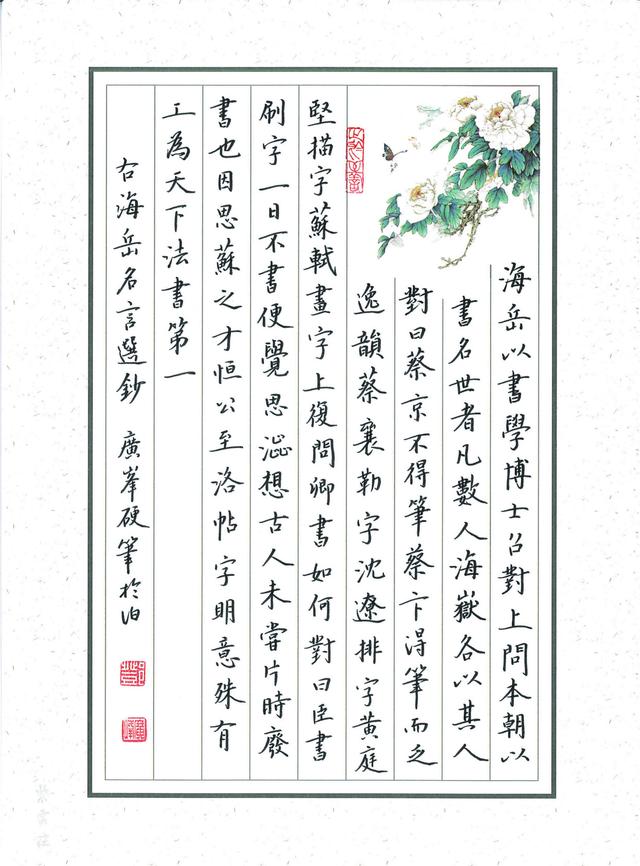 海岳以書學博士召對上問本朝以
書名世者凡數人海嶽各以其人
對曰蔡京不得筆蔡卞得筆而乏
逸韻蔡襄勒字沈遼排字黃庭
堅描字蘇軾畫字上復問卿書如何對曰臣書
刷字一日不書便覺思澁想古人未嘗片時廢
書也因思蘇之才恒公至洛帖字明意殊有
工為天下法書第一
右海岳名言選鈔 廣峯硬筆於泊